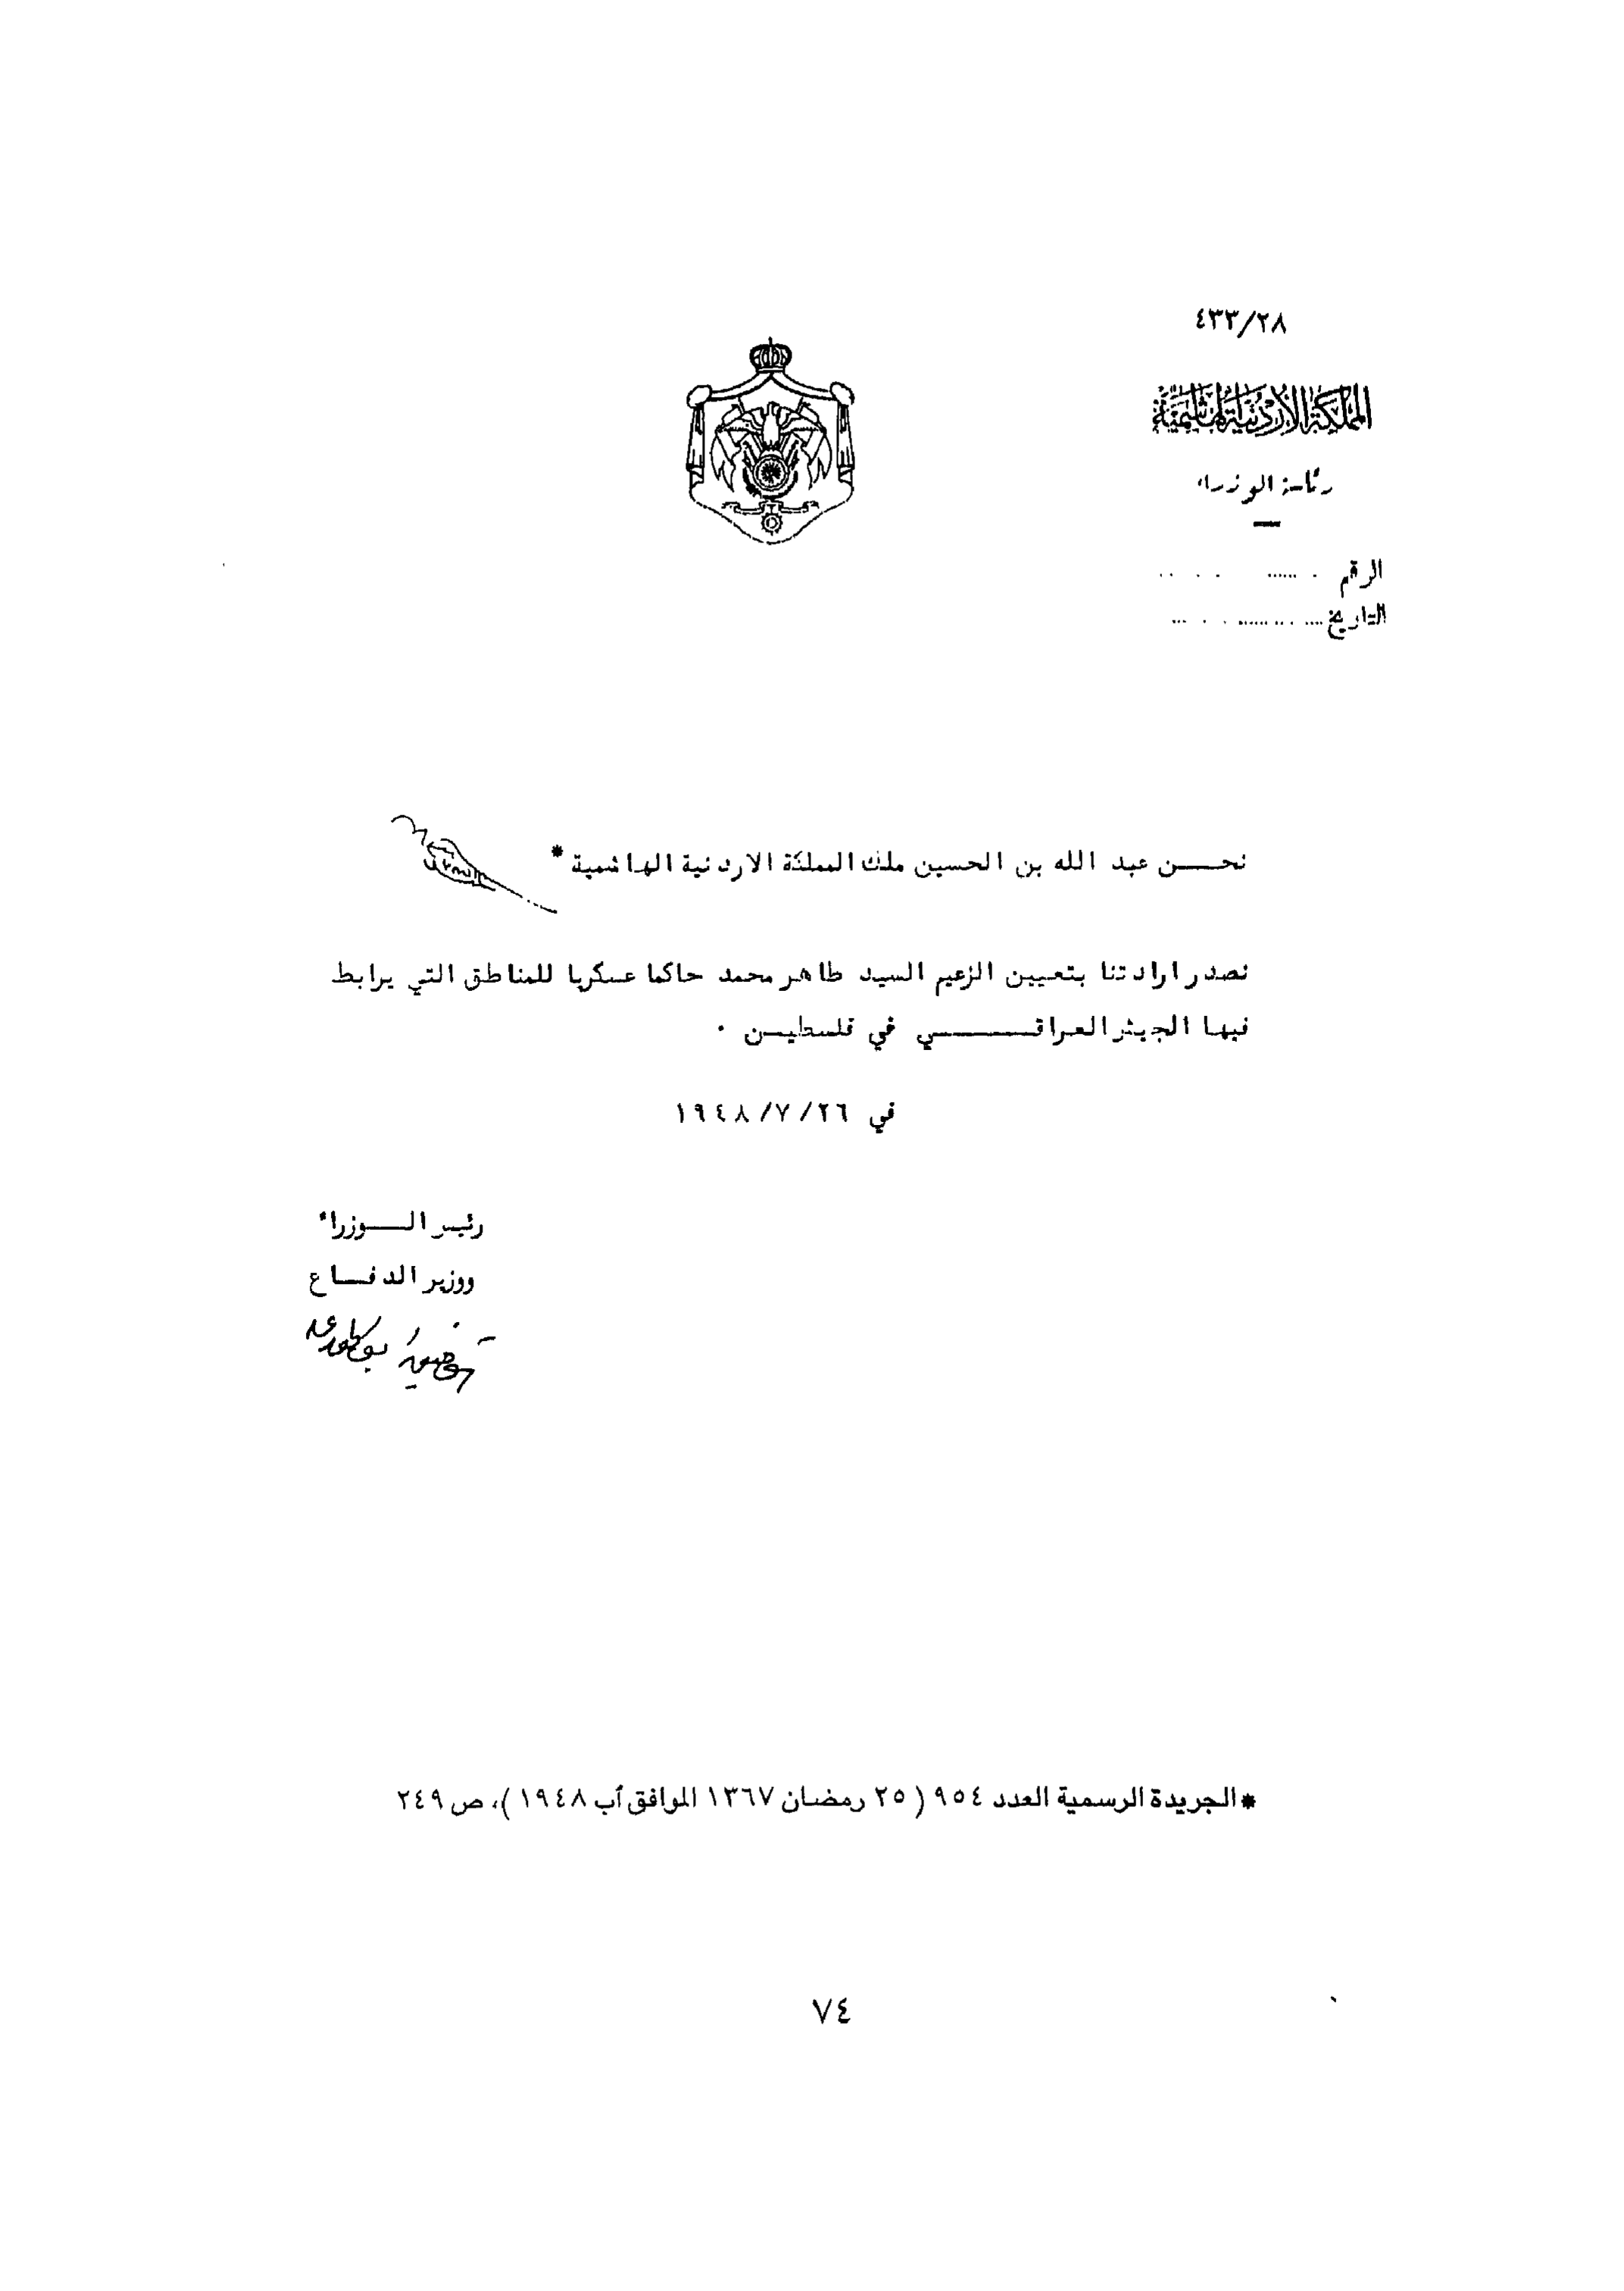 ٤٣٣/٢٨
المملكة الأردنية الهاشمية
رئاسة الوزراء
الرقم
التاريخ
نحـــن عبد الله بن الحسين ملك المملكة الاردنية الهاشمية *
نصدر ارادتنا بتعيين الزعيم السيد طاهر محمد حاكما عسكريا للمناطق التي يرابط
فيها الجيش العراقـــــي في فلسطيـن ٠
في ٢٦/ ٧/ ١٩٤٨
رئيس الـــوزراء
ووزير الدفــاع
توفيق ابو الهدى
* الجريدة الرسمية العدد ٩٥٤ ( ٢٥ رمضان ١٣٦٧ الموافق أب ١٩٤٨ )، ص ٢٤٩
٧٤